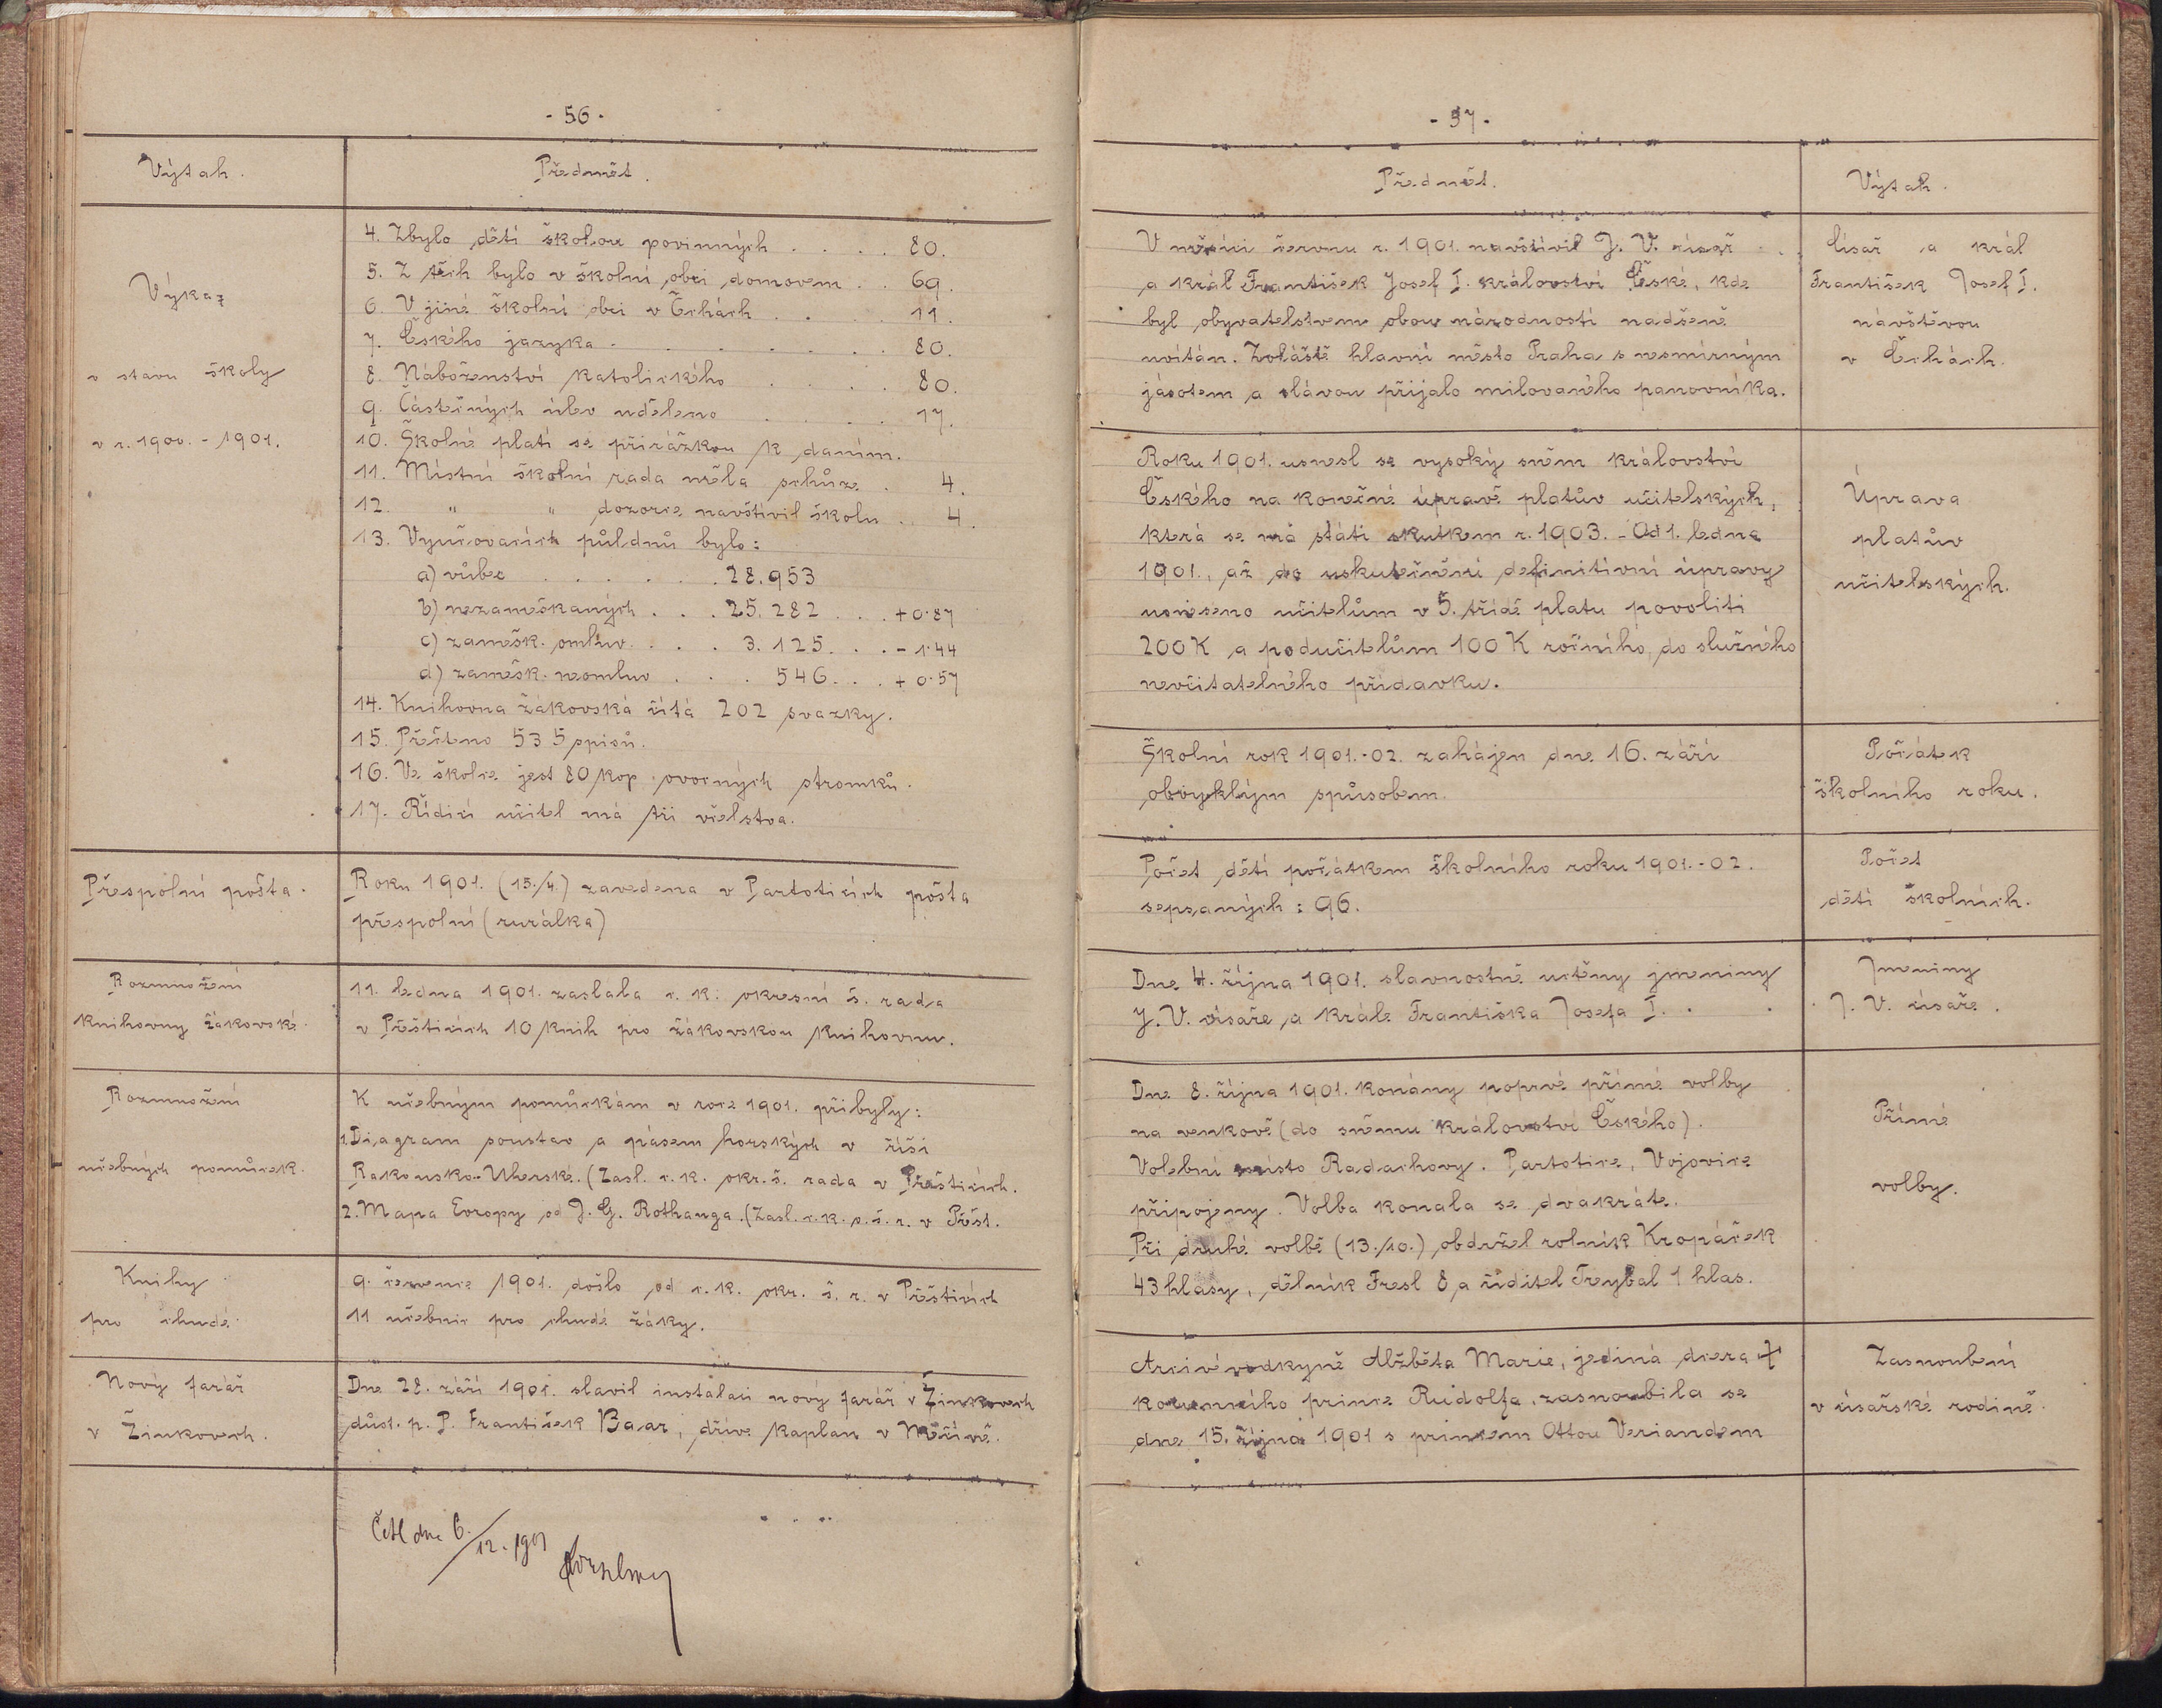 - 56 -
Výtah.
Předmět.
Výkaz
o stavu školy
v r. 1900. - 1901.
4. Zbylo dětí školou povinných . . . . 80.
5. Z těch bylo v školní obci domovem . . 69.
6. V jiné školní obci v Čechách . . . . 11.
7. Českého jazyka . . . . . . . 80.
8. Náboženství katolického . . . . 80.
9. Částečných úlev uděleno . . . . 17.
10. Školné platí se přirážkou k daním.
11. Místní školní rada měla schůze . 4.
12. " " dozorce navštívil školu . . 4.
13. Vyučovacích půldnů bylo:
a) vůbec . . . . . . 28.953
b) nezameškaných . . . 25.282 . . . + 0·87
c) zamešk. omluv. . . . 3.125 . . . - 1·44
d) zamešk. neomluv . . . 546 . . . + 0·57
14. Knihovna žákovská čítá 202 svazky.
15. Přečteno 535 spisů.
16. Ve školce jest 80 kop ovocných stromků.
17. Řídící učitel má tři včelstva.
Přespolní pošta.
Roku 1901. (15./4.) zavedena v Partoticích pošta
přespolní (rurálka)
Rozmnožení
knihovny žákovské.
11. ledna 1901. zaslala c. k. okresní š. rada
v Přešticích 10 knih pro žákovskou knihovnu.
Rozmnožení
učebných pomůcek.
K učebným pomůckám v roce 1901. přibyly:
1. Diagram soustav a pásem horských v říši
Rakousko-Uherské. (Zasl. c. k. okr. š. rada v Přešticích.
2. Mapa Evropy od J. G. Rothauga. (Zasl. c. k. o. š. r. v Přešt.
Knihy
pro chudé.
9. července 1901. došlo od c. k. okr. š. r. v Přešticích
11 učebnic pro chudé žáky.
Nový farář
v Žinkovech.
Dne 28. září 1901. slavil instalaci nový farář v Žinkovech
důst. p. P. František Baar, dříve kaplan v Měčíně.
Četl dne 6./12. 1901
- 57 -
Předmět.
Výtah.
V měsíci červnu r. 1901. navštívil J. V. císař
a král František Josef I. království České, kde
byl obyvatelstvem obou národností nadšeně
uvítán. Zvláště hlavní město Praha s nesmírným
jásotem a slávou přijalo milovaného panovníka.
Císař a král
František Josef I.
návštěvou
v Čechách.
Roku 1901. usnesl se vysoký sněm království
Českého na konečné úpravě platův učitelských,
která se má státi skutkem r. 1903. - Od 1. ledna
1901., až do uskutečnění definitivní úpravy
usneseno učitelům v 5. třídě platu povoliti
200 K a podučitelům 100 K ročního, do služného
nevčitatelného přídavku.
Úprava
platův
učitelských.
Školní rok 1901.-02. zahájen dne 16. září
obvyklým spůsobem.
Počátek
školního roku.
Počet dětí počátkem školního roku 1901.-02.
sepsaných: 96.
Počet
dětí školních.
Dne 4. října 1901. slavnostně uctěny jmeniny
J. V. císaře a krále Františka Josefa I.
Jmeniny
J. V. císaře.
Dne 8. října 1901. konány poprvé přímé volby
na venkově (do sněmu království Českého).
Volební místo Radochovy. Partotice, Vojovice
připojeny. Volba konala se dvakráte.
Při druhé volbě (13./10.) obdržel rolník Kropáček
43 hlasy, dělník Fresl 8 a ředitel Treybal 1 hlas.
Přímé
volby.
Arcivévodkyně Alžběta Marie, jediná dcera †
korunního prince Rudolfa, zasnoubila se
dne 15. října 1901 s princem Ottou Veriandem
Zasnoubení
v císařské rodině.